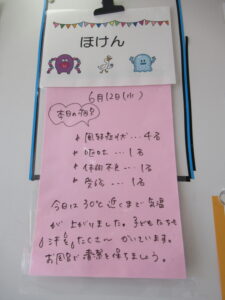 ほけん
6月12日(水)
本日の
* 風邪症状 … 4名
* 嘔吐 … 1名
* 体調不良 … 1名
* … 1名
今日は30℃近くまで気温
が上がりました。子どもたちも
汗をたくさんかいています。
お風呂で清潔を保ちましょう。